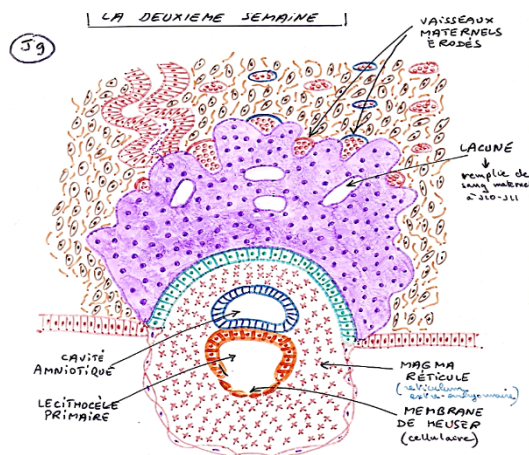 LA DEUXIEME SEMAINE
J9
VAISSEAUX
MATERNELS
ÉRODÉS
LACUNE
remplie de
sang maternel
à J10-J11
CAVITÉ
AMNIOTIQUE
LECITHOCÈLE
PRIMAIRE
MAGMA
RÉTICULÉ
(réticulum
extra-embryonnaire)
MEMBRANE
DE HEUSER
(cellulaire)